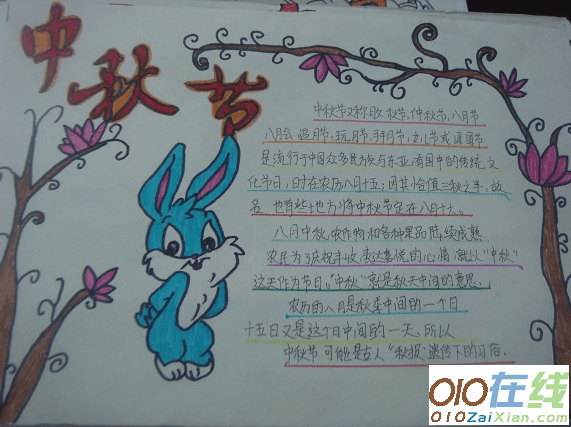 中秋节
中秋节又称月夕,秋节,仲秋节,八月节
八月会,追月节,玩月节,拜月节,女儿节或团圆节
是流行于中国众多民族与东亚诸国中的传统文
化节日,时在农历八月十五;因其恰值三秋之半,故
名,也有些地方将中秋节定在八月十六。
八月中秋,农作物和各种果品陆续成熟
农民为了庆祝丰收,表达喜悦的心情,就以“中秋”
这天作为节日。“中秋”就是秋天中间的意思。
农历的八月是秋季中间的一个月
十五日又是这个月中间的一天,所以
中秋节可能是古人“秋报”遗传下的习俗.
010在线
010ZaiXian.com